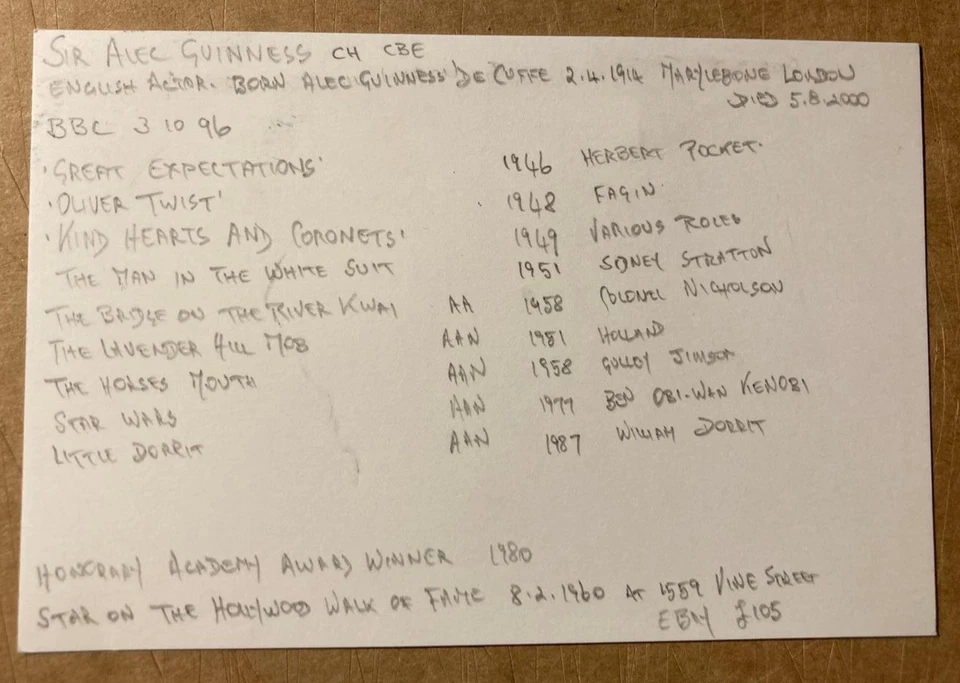 SIR ALEC GUINNESS CH CBE
ENGLISH ACTOR. BORN ALEC GUINNESS DE CUFFE 2.4.1914 MARYLEBONE LONDON
DIED 5.8.2000
BBC 3 10 96
'GREAT EXPECTATIONS' 1946 HERBERT POCKET.
'OLIVER TWIST' 1948 FAGIN
'KIND HEARTS AND CORONETS' 1949 VARIOUS ROLES
THE MAN IN THE WHITE SUIT 1951 SIDNEY STRATTON
THE BRIDGE ON THE RIVER KWAI AA 1958 COLONEL NICHOLSON
THE LAVENDER HILL MOB AAN 1951 HOLLAND
THE HORSES MOUTH AAN 1958 GULLEY JIMSON
STAR WARS AAN 1977 BEN OBI-WAN KENOBI
LITTLE DORRIT AAN 1987 WILLIAM DORRIT
HONORARY ACADEMY AWARD WINNER 1980
STAR ON THE HOLLYWOOD WALK OF FAME 8.2.1960 AT 1559 VINE STREET
EBAY £105